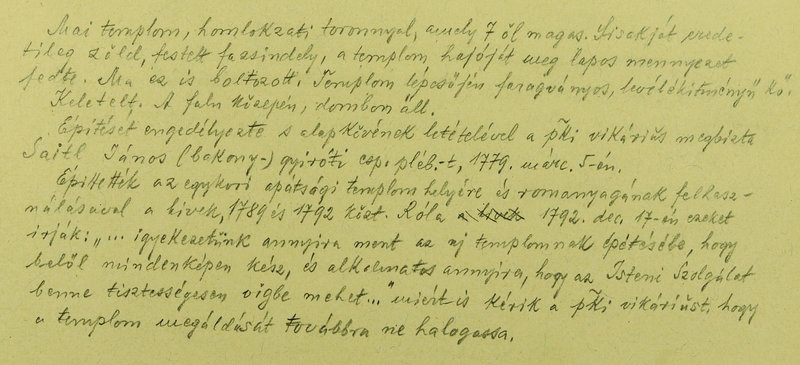 Mai templom, homlokzati toronnyal, amely 7 öl magas. Sisakját erede-
tileg zöld, festett fazsindely, a templom hajóját meg lapos mennyezet
fedte. Ma ez is boltozott. Templom lépcsőjén faragványos, levéldíszítményű kő.
Keletelt. A falu közepén, dombon áll.
Építését engedélyezte s alapkövének letételével a pki vikárius megbízta
Saitl János (bakony-) gyiróti esp. pléb.-t, 1779. márc. 5-én.
Építették az egykori apátsági templom helyére és romanyagának felhasz-
nálásával a hivek, 1789 és 1792 közt. Róla a hivek 1792. dec. 17-én ezeket
irják: „... igyekezetünk annyira ment az uj templomnak épétésébe, hogy
belől mindenképen kész, és alkalmatos annyira, hogy az Isteni Szolgálat
benne tisztességesen vigbe mehet..." miért is kérik a pki vikáriust, hogy
a templom megáldását továbbra ne halogassa.